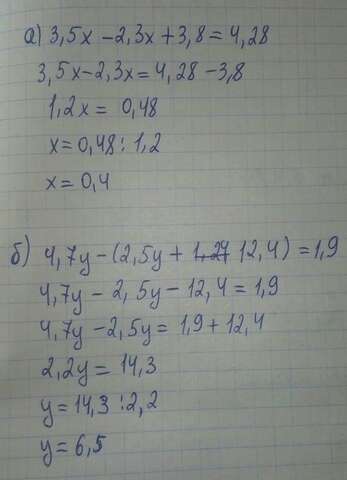 а) 3,5x - 2,3x + 3,8 = 4,28
3,5x - 2,3x = 4,28 - 3,8
1,2x = 0,48
x = 0,48 : 1,2
x = 0,4
б) 4,7y - (2,5y + 12,4) = 1,9
4,7y - 2,5y - 12,4 = 1,9
4,7y - 2,5y = 1,9 + 12,4
2,2y = 14,3
y = 14,3 : 2,2
y = 6,5